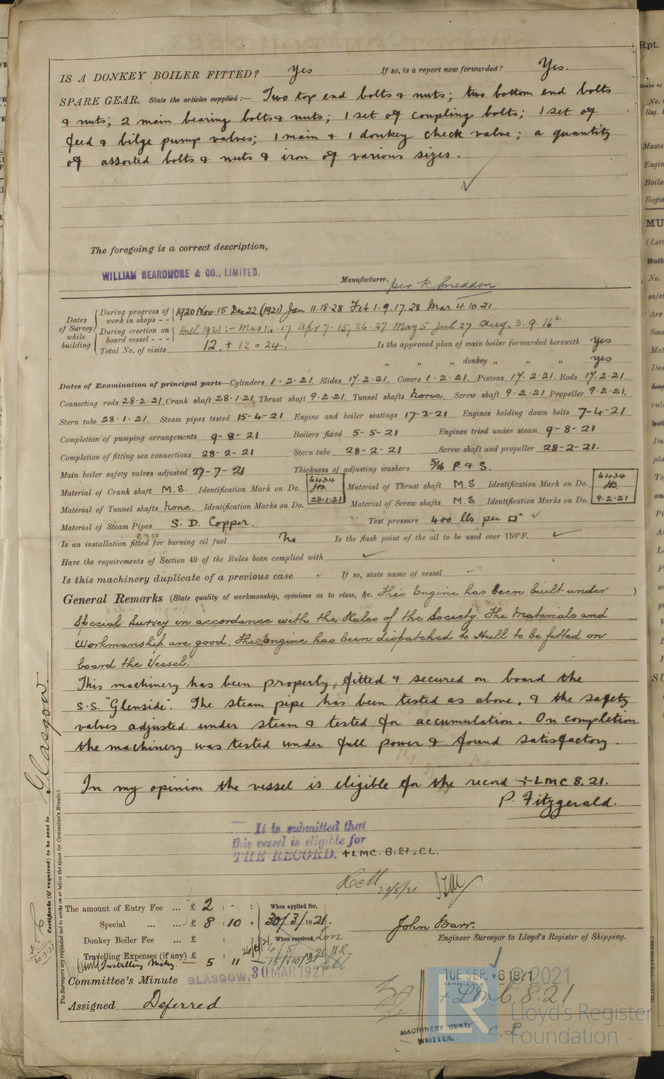 IS A DONKEY BOILER FITTED? Yes If so, is a report now forwarded? Yes.
SPARE GEAR. State the articles supplied:— Two top end bolts & nuts; two bottom end bolts
& nuts; 2 main bearing bolts & nuts; 1 set of coupling bolts; 1 set of
feed & bilge pump valves; 1 main & 1 donkey check valve; a quantity
of assorted bolts & nuts & iron of various sizes.
The foregoing is a correct description,
WILLIAM BEARDMORE & CO., LIMITED.
Manufacturer.
Dates of Survey while building
During progress of work in shops - - 1920 Nov 15 Dec 22 (1921) Jan 11.18.28 Feb 1.9.17.28 Mar 4.10.21.
During erection on board vessel - - - Hull 1921:- Mar 16 17 Apr 7-15, 26-27 May 5 Jul 27 Aug. 3.9.16
Total No. of visits 12 + 12 = 24. Is the approved plan of main boiler forwarded herewith Yes
" " " donkey " " " Yes
Dates of Examination of principal parts—Cylinders 1-2-21 Slides 17.2.21. Covers 1-2-21. Pistons 17.2.21. Rods 17.2.21.
Connecting rods 28-2-21. Crank shaft 28-1.21. Thrust shaft 9-2-21. Tunnel shafts none. Screw shaft 9-2.21. Propeller 9-2.21.
Stern tube 28-1.21. Steam pipes tested 15-4-21 Engine and boiler seatings 17-3-21 Engines holding down bolts 7-4-21
Completion of pumping arrangements 9-8-21 Boilers fixed 5-5-21 Engines tried under steam 9-8-21
Completion of fitting sea connections 28-2-21 Stern tube 28-2-21 Screw shaft and propeller 28-2-21.
Main boiler safety valves adjusted 27-7-21 Thickness of adjusting washers 5/16 P & S.
Material of Crank shaft M.S. Identification Mark on Do. 6434 28-1-21 Material of Thrust shaft M.S Identification Mark on Do. 6434 9-2-21
Material of Tunnel shafts none. Identification Marks on Do. Material of Screw shafts M.S. Identification Marks on Do.
Material of Steam Pipes S. D. Copper. Test pressure 400 lbs per □"
Is an installation fitted for burning oil fuel No Is the flash point of the oil to be used over 150°F. ✓
Have the requirements of Section 49 of the Rules been complied with ✓
Is this machinery duplicate of a previous case - If so, state name of vessel -
General Remarks (State quality of workmanship, opinions as to class, &c. This Engine has been built under )
Special Survey in accordance with the Rules of the Society. The Materials and
Workmanship are good. The Engine has been dispatched to Hull to be fitted on
board the Vessel.
This machinery has been properly fitted & secured on board the
S.S. "Glenside". The steam pipe has been tested as above, & the safety
valves adjusted under steam & tested for accumulation. On completion
the machinery was tested under full power & found satisfactory.
In my opinion the vessel is eligible for the record +LMC 8.21.
P. Fitzgerald.
It is submitted that
this vessel is eligible for
THE RECORD. +LMC. 8.21. CL.
Certificate (if required) to be sent to Glasgow.
(The Surveyors are requested not to write on or below the space for Committee's Minute.)
The amount of Entry Fee ... £ 2 : - : When applied for,
Special ... ... £ 8 : 10 : 30/3/1921.
Donkey Boiler Fee ... £ : : When received,
Travelling Expenses (if any) £ 5 : 11
John Barr.
Engineer Surveyor to Lloyd's Register of Shipping.
Committee's Minute GLASGOW, 30 MAR 1921
Assigned Deferred
TUE. SEP. 6 1921
+ LMC. 8.21
C.L
MACHINERY CERT.
WRITTEN.
2021
Lloyd's Register
Foundation
Rpt.